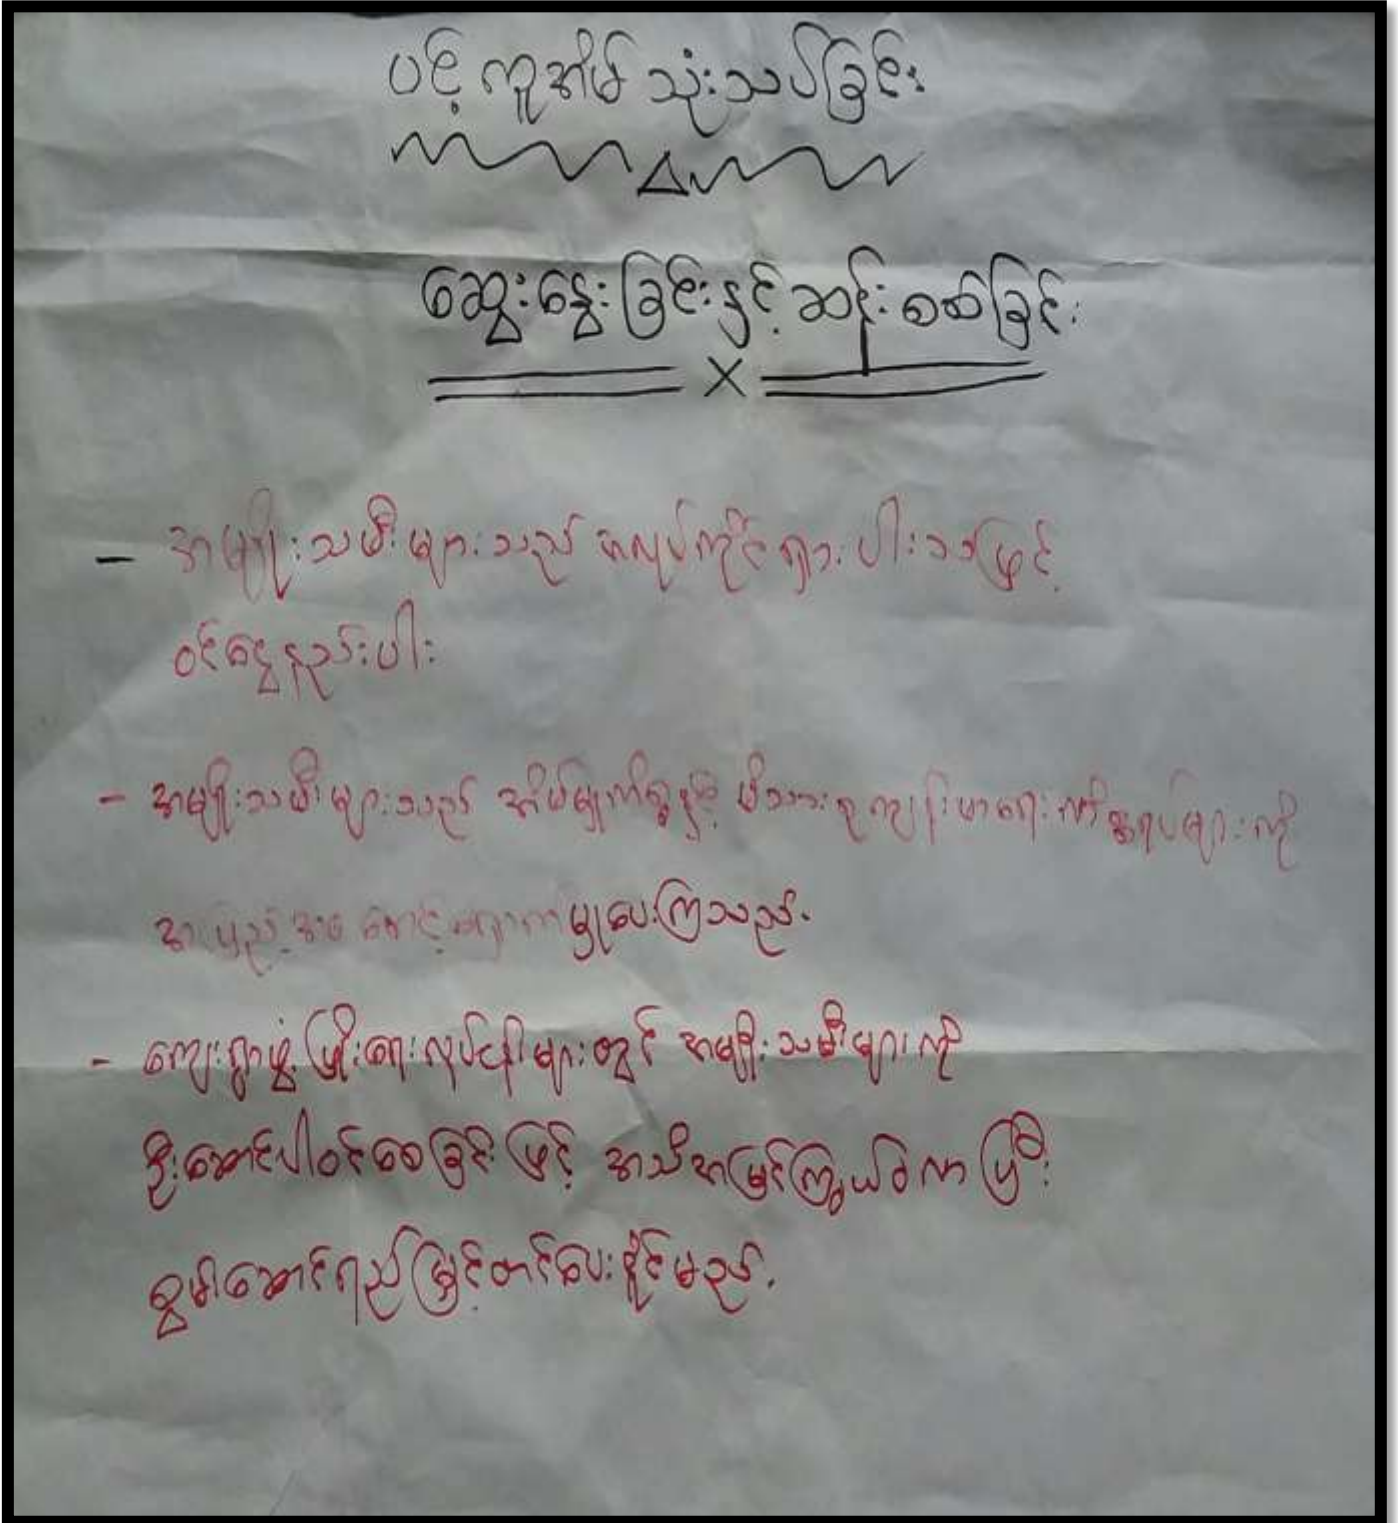 ပင့်ကူအိမ် သုံးသပ်ခြင်း
ဆွေးနွေးခြင်းနှင့် ဆန်းစစ်ခြင်း
- အမျိုးသမီးများသည် အလုပ်အကိုင်ရှားပါးသဖြင့်
ဝင်ငွေနည်းပါး
- အမျိုးသမီးများသည် အိမ်မှုကိစ္စနှင့် မိသားစုကျန်းမာရေးကိစ္စရပ်များကို
အပြည့်အဝ စောင့်ရှောက်မှုပေးကြသည်.
- ကျေးရွာဖွံ့ဖြိုးရေးလုပ်ငန်းများတွင် အမျိုးသမီးများကို
ဦးဆောင်ပါဝင်စေခြင်းဖြင့် အသိအမြင်ကြွယ်ဝလာပြီး
စွမ်းဆောင်ရည်မြှင့်တင်ပေးနိုင်မည်.